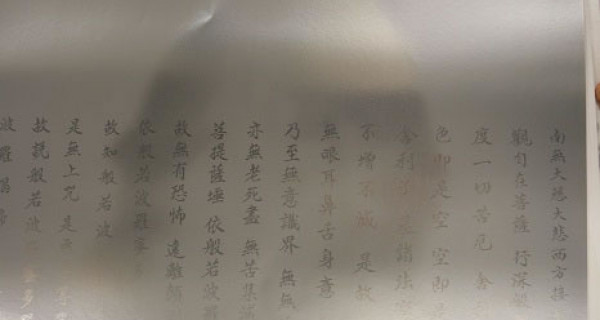 南無大慈大悲西方接
觀自在菩薩 行深般
度一切苦厄 舍
色即是空 空即是
舍利 是諸法
不增不減 是故
無眼耳鼻舌身意
乃至無意識界 無無
亦無老死盡 無苦集
菩提薩埵 依般若波羅
故無有恐怖 遠離顛
依般若波羅蜜
故知般若波
是無上咒 是
故說般若波 多
波羅揭帝